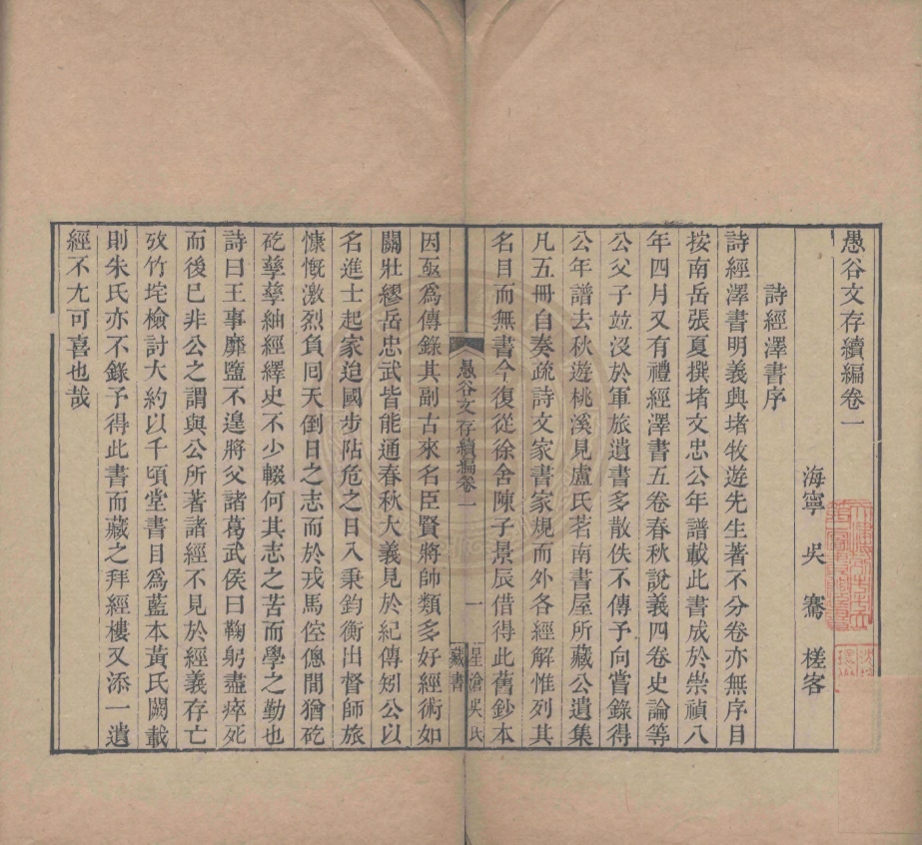 愚谷文存續編卷一
海寧 吳騫 槎客
詩經澤書序
詩經澤書明義興堵牧遊先生著不分卷亦無序目
按南岳張夏撰堵文忠公年譜載此書成於崇禎八
年四月又有禮經澤書五卷春秋說義四卷史論等
公父子竝沒於軍旅遺書多散佚不傳予向嘗錄得
公年譜去秋遊桃溪見盧氏茗南書屋所藏公遺集
凡五冊自奏疏詩文家書家規而外各經解惟列其
名目而無書今復從徐舍陳子景辰借得此舊鈔本
愚谷文存續編卷一
一
星滄吳氏
藏書
因亟爲傳錄其副古來名臣賢將帥類多好經術如
關壯繆岳忠武皆能通春秋大義見於紀傳矧公以
名進士起家迨國步阽危之日入秉鈞衡出督師旅
慷慨激烈負囘天倒日之志而於戎馬倥傯間猶矻
矻孳孳紬經繹史不少輟何其志之苦而學之勤也
詩曰王事靡盬不遑將父諸葛武侯曰鞠躬盡瘁死
而後已非公之謂與公所著諸經不見於經義存亡
攷竹垞檢討大約以千頃堂書目爲藍本黃氏闕載
則朱氏亦不錄予得此書而藏之拜經樓又添一遺
經不尢可喜也哉